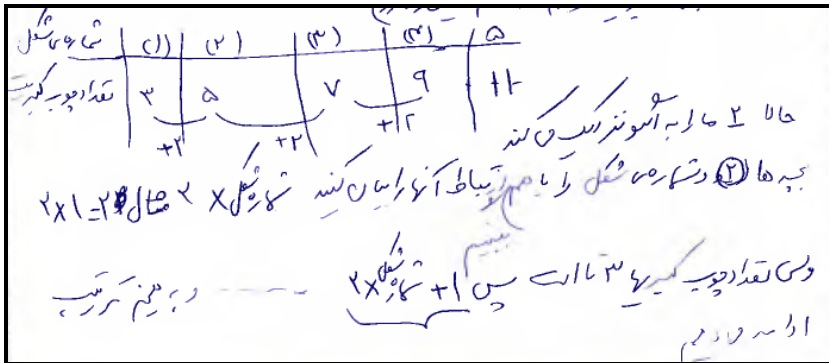 شماره‌ی شکل | (۱) | (۲) | (۳) | (۴) | ۵
تعداد چوب کبریت | ۳ | ۵ | ۷ | ۹ | ۱۱
+۲ +۲ +۲
حالا ۲ ما را به آموز نزدیک می کند
بچه ها ۲ و شماره‌ی شکل را با هم ارتباط آنها را بیان کنید شماره شکل × ۲ مثال ۲=۱×۲
ببینیم
ولی تعداد چوب کبریتها ۳ تا است پس ۱ + شماره شکل × ۲ ------ و به همین ترتیب
ادامه می دهیم